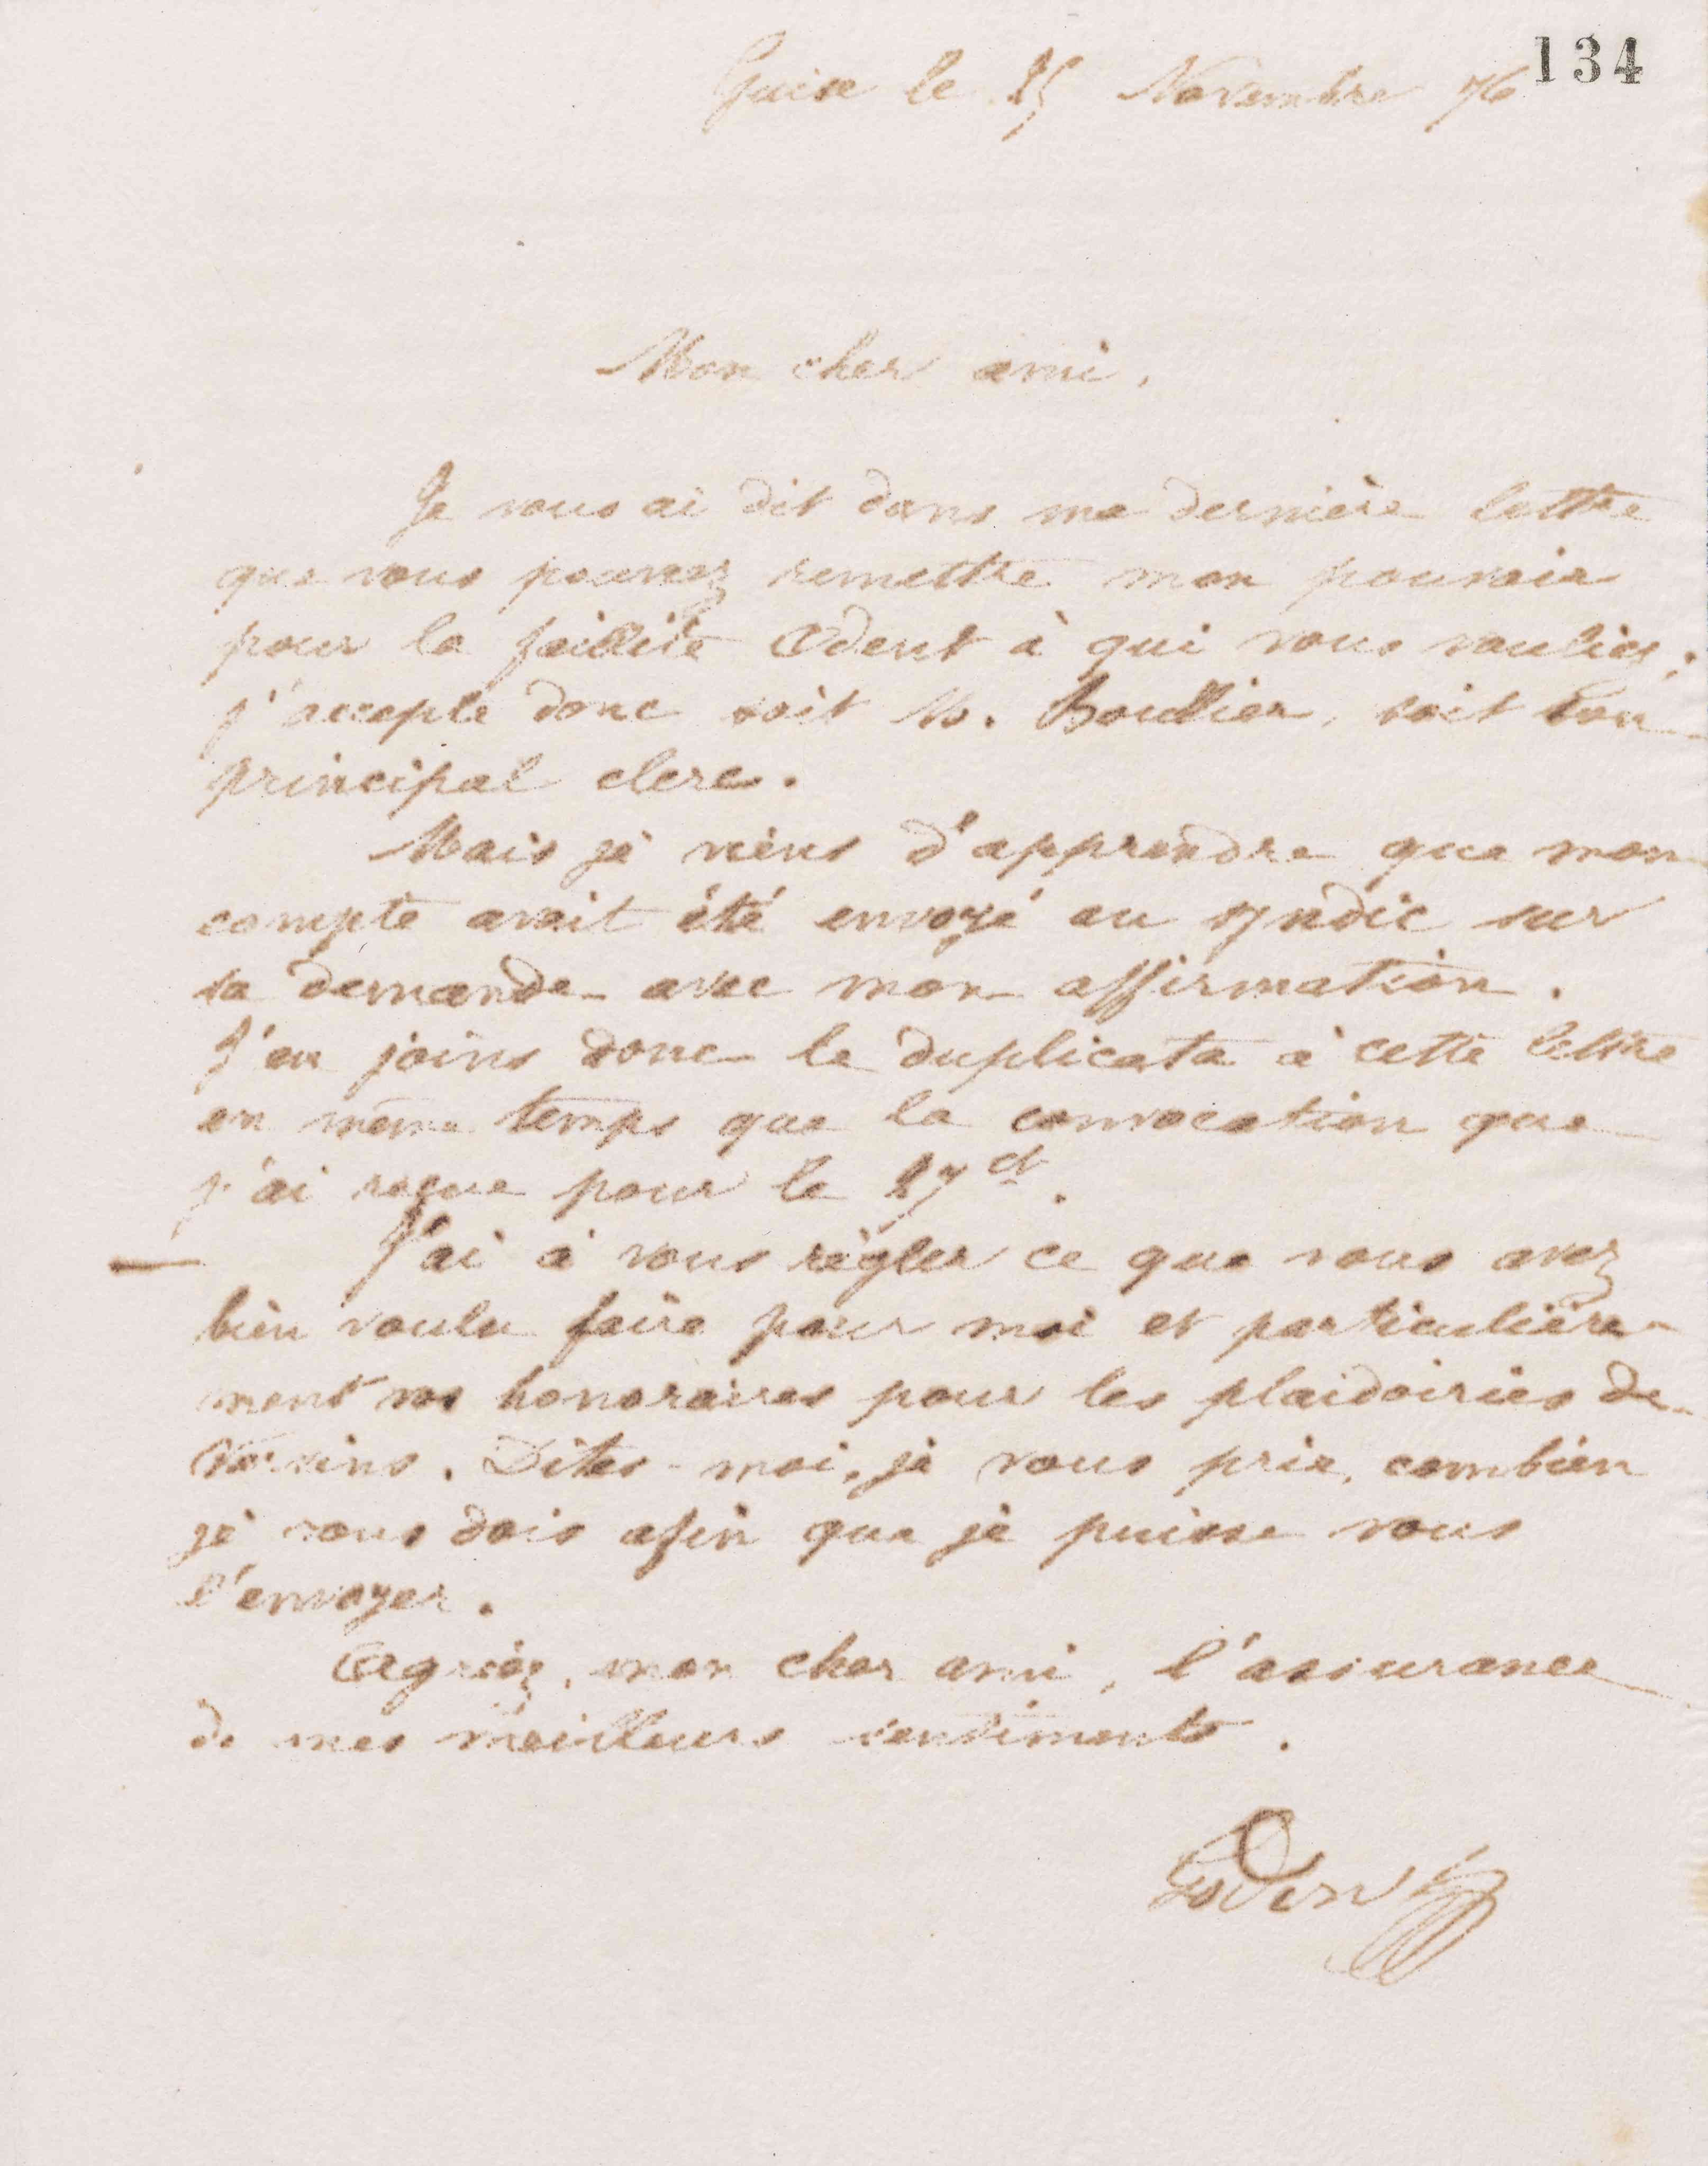 134
Guise le 25 Novembre 76
Mon cher ami,
Je vous ai dit dans ma dernière lettre
que vous pouvez remettre mon pouvoir
pour la faillite Odent à qui vous vouliez ;
j'accepte donc soit M. Boullier, soit son
principal clerc.
Mais je viens d'apprendre que mon
compte avait été envoyé au syndic sur
sa demande avec mon affirmation.
J'en joins donc le duplicata à cette lettre
en même temps que la convocation que
j'ai reçue pour le 27 ct.
J'ai à vous régler ce que vous avez
bien voulu faire pour moi et particulière-
ment vos honoraires pour les plaidoiries de
Vervins. Dites-moi, je vous prie, combien
je vous dois afin que je puisse vous
l'envoyer.
Agréez, mon cher ami, l'assurance
de mes meilleurs sentiments.
Godin